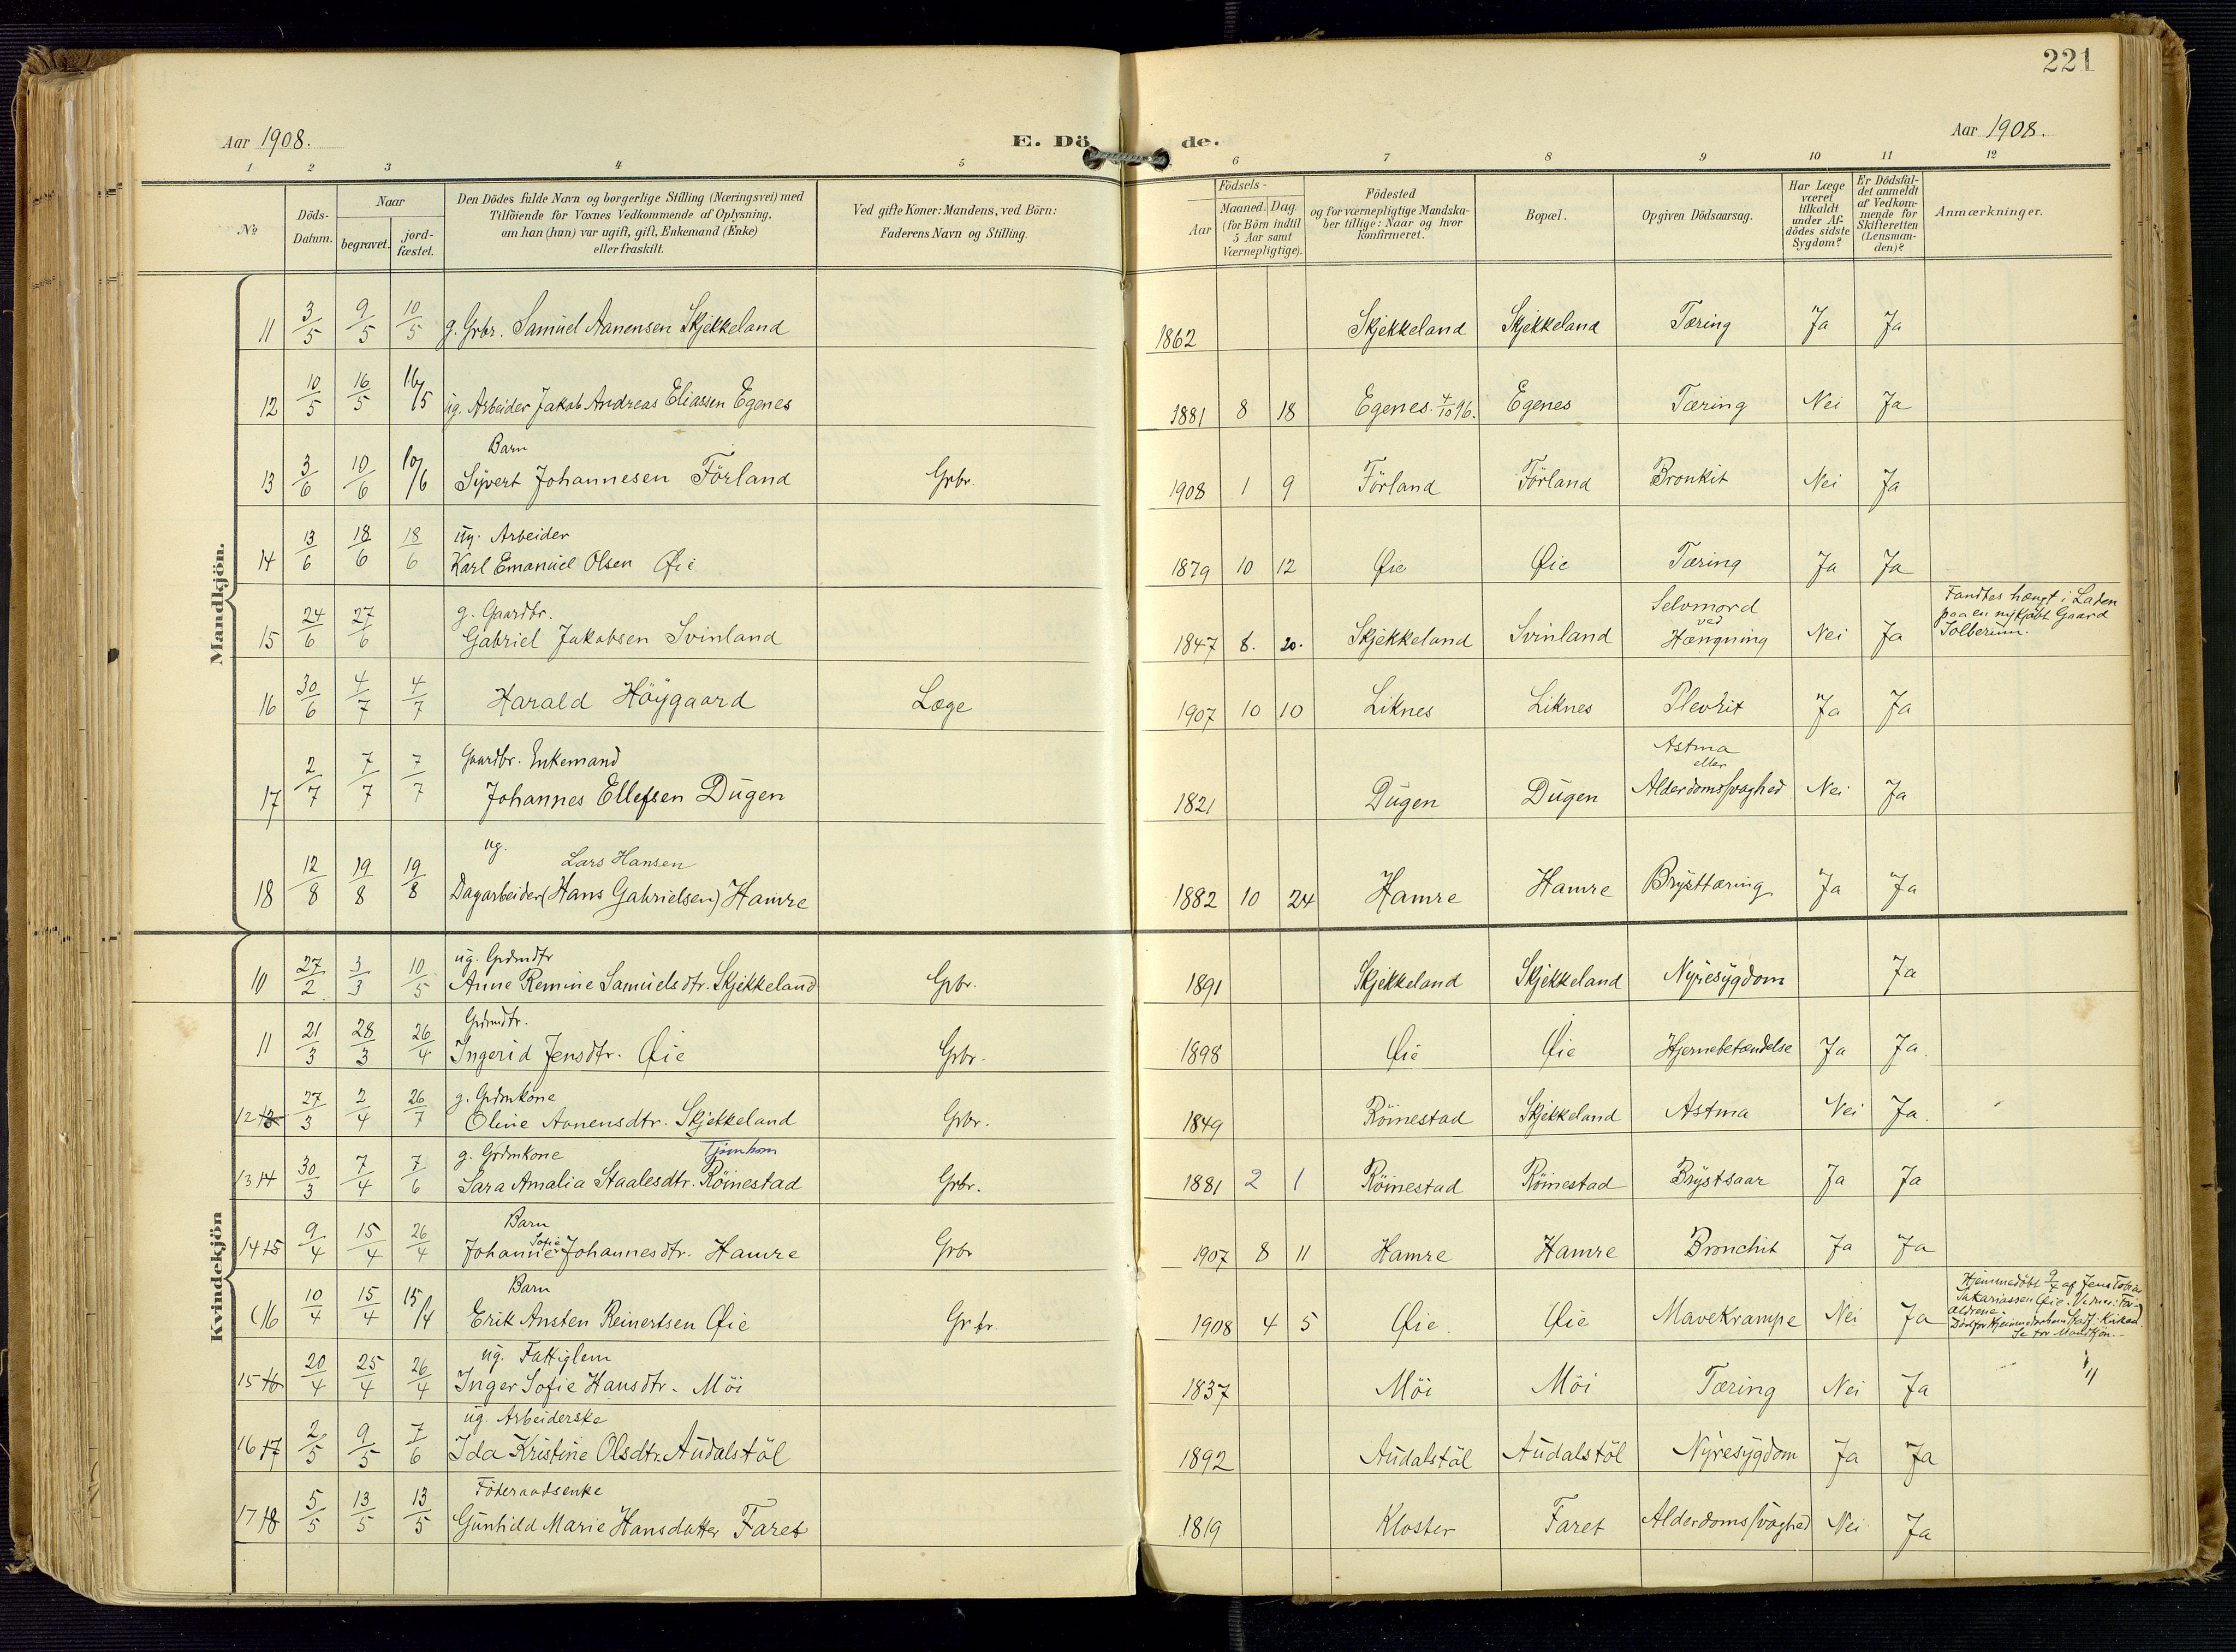 221
Aar 1908.
E. Dö de.
Aar 1908.
1 2 3 4 5 6 7 8 9 10 11 12
No
Döds-Datum.
Naar
begravet.
jord-fæstet.
Den Dödes fulde Navn og borgerlige Stilling (Næringsvei) med
Tilföiende for Voxnes Vedkommende af Oplysning,
om han (hun) var ugift, gift, Enkemand (Enke)
eller fraskilt.
Ved gifte Koner: Mandens, ved Börn:
Faderens Navn og Stilling.
Födsels-
Aar
Maaned. Dag.
(for Börn indtil
5 Aar samt
Værnepligtige).
Födested
og for værnepligtige Mandska-
ber tillige: Naar og hvor
konfirmeret.
Bopæl.
Opgiven Dödsaarsag.
Har Læge
været
tilkaldt
under Af-
dödes sidste
Sygdom?
Er Dödsfal-
det anmeldt
af Vedkom-
mende for
Skifteretten
(Lensman-
den)?
Anmærkninger.
Mandkjön.
11 3/5 9/5 10/5 g. Grbr. Samuel Aanensen Skjekkeland 1862 Skjekkeland Skjekkeland Tæring Ja Ja
12 10/5 16/5 16/5 ug. Arbeider Jakob Andreas Eliassen Egenes 1881 8 18 Egenes. 4/10 96. Egenes Tæring Nei Ja
Barn
13 3/6 10/6 10/6 Syvert Johannesen Förland Grbr. 1908 1 9 Förland Förland Bronkit Nei Ja
ug. Arbeider
14 13/6 18/6 18/6 Karl Emanuel Olsen Øie 1879 10 12 Øie Øie Tæring Ja Ja
g. Gaardbr. Selvmord Fandtes hængt i Laden
ved paa en nykjöbt Gaard
15 24/6 27/6 Gabriel Jakobsen Svinland 1847 8. 20. Skjekkeland Svinland Hængning Nei Ja Solberum.
16 30/6 4/7 4/7 Harald Höygaard Læge 1907 10 10 Liknes Liknes Plevrit Ja Ja
Gaardbr. Enkemand Astma
eller
17 2/7 7/7 7/7 Johannes Ellefsen Dugen 1821 Dugen Dugen Alderdomssvaghed Nei Ja
ug.
Lars Hansen
18 12/8 19/8 19/8 Dagarbeider (Hans Gabrielsen) Hamre 1882 10 24 Hamre Hamre Brysttæring Ja Ja
Kvindekjön
ug. Grdmdtr
10 27/2 3/3 10/5 Anne Remine Samuelsdtr. Skjekkeland Grbr. 1891 Skjekkeland Skjekkeland Nyresygdom Ja
Grdmdtr.
11 21/3 28/3 26/4 Ingerid Jensdtr. Øie Grbr. 1898 Øie Øie Hjernebetændelse Ja Ja.
g. Grdmkone
12 13 27/3 2/4 26/7 Oline Aanensdtr. Skjekkeland Grbr. 1849 Röinestad Skjekkeland Astma Nei Ja.
g. Grdmkone Tjomhom
13 14 30/3 7/4 7/6 Sara Amalia Staalesdtr. Röinestad Grbr. 1881 2 1 Röinestad Röinestad Brystsaar Ja Ja
Barn
Sofie
14 15 9/4 15/4 26/4 Johanne Johannesdtr. Hamre Grbr 1907 8 11 Hamre Hamre Bronchit Ja Ja
Barn Hjemmedöbt 9/4 af Jens Tobias
Sakariassen Øie.
16 10/4 15/4 15/4 Erik Ansten Reinertsen Øie Grbr. 1908 4 5 Øie. Øie Mavekrampe Nei Ja
Se for Mandkjön.
ug. Fattiglem
15 16 20/4 25/4 26/4 Inger Sofie Hansdtr. Möi 1837 Möi Möi Tæring Nei Ja
ug. Arbeiderske
16 17 2/5 9/5 7/6 Ida Kristine Olsdtr. Audalstöl 1892 Audalstöl Audalstöl Nyresygdom Ja Ja
Föderaadsenke
17 18 5/5 13/5 13/5 Gunhild Marie Hansdatter Faret 1819 Kloster Faret Alderdomssvaghed Nei Ja